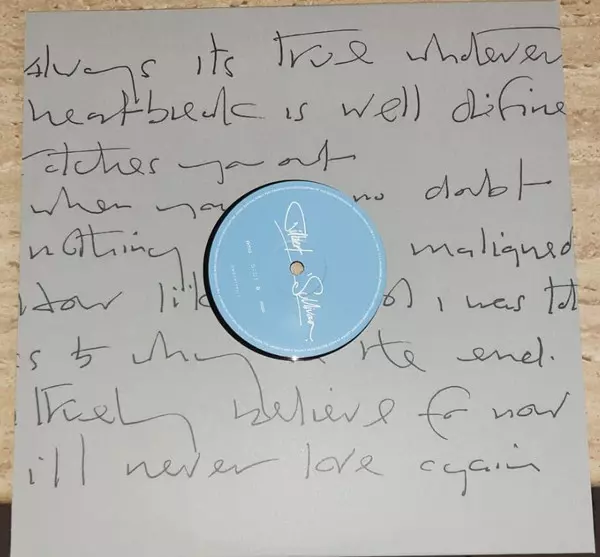 always its true whatever
heartbreak is well define
atches you out
when you no doubt
nothing maligned
How lik I was tol
s to why the end.
truely believe for now
ill never love again
Gilbert O'Sullivan